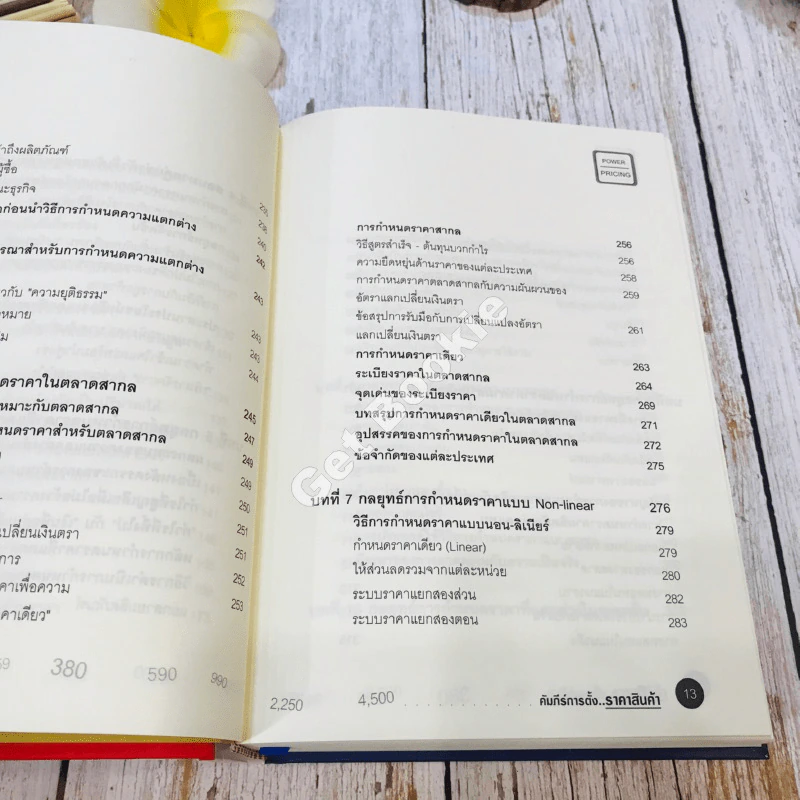 ถึงผลิตภัณฑ์
ผู้ซื้อ
ณะธุรกิจ 235
ก่อนนำวิธีการกำหนดความแตกต่าง 238
240
รณาสำหรับการกำหนดความแตกต่าง 242
วกับ "ความยุติธรรม" 243
หมาย
ม 243
243
244
ดราคาในตลาดสากล
หมาะกับตลาดสากล 245
หนดราคาสำหรับตลาดสากล 247
249
249
250
เปลี่ยนเงินตรา 251
การ 251
คาเพื่อความ 252
คาเดียว" 253
59 380 590 990
POWER
PRICING
การกำหนดราคาสากล 256
วิธีสูตรสำเร็จ - ต้นทุนบวกกำไร 256
ความยืดหยุ่นด้านราคาของแต่ละประเทศ 258
การกำหนดราคาตลาดสากลกับความผันผวนของ 259
อัตราแลกเปลี่ยนเงินตรา
ข้อสรุปการรับมือกับการเปลี่ยนแปลงอัตรา 261
แลกเปลี่ยนเงินตรา
การกำหนดราคาเดียว 263
ระเบียงราคาในตลาดสากล 264
จุดเด่นของระเบียงราคา 269
บทสรุปการกำหนดราคาเดียวในตลาดสากล 271
อุปสรรคของการกำหนดราคาในตลาดสากล 272
ข้อจำกัดของแต่ละประเทศ 275
บทที่ 7 กลยุทธ์การกำหนดราคาแบบ Non-linear 276
วิธีการกำหนดราคาแบบนอน-ลิเนียร์ 279
กำหนดราคาเดียว (Linear) 279
ให้ส่วนลดรวมจากแต่ละหน่วย 280
ระบบราคาแยกสองส่วน 282
ระบบราคาแยกสองตอน 283
2,250 4,500 . . . . . . . . . . . . คัมภีร์การตั้ง..ราคาสินค้า 13
Get Bookie